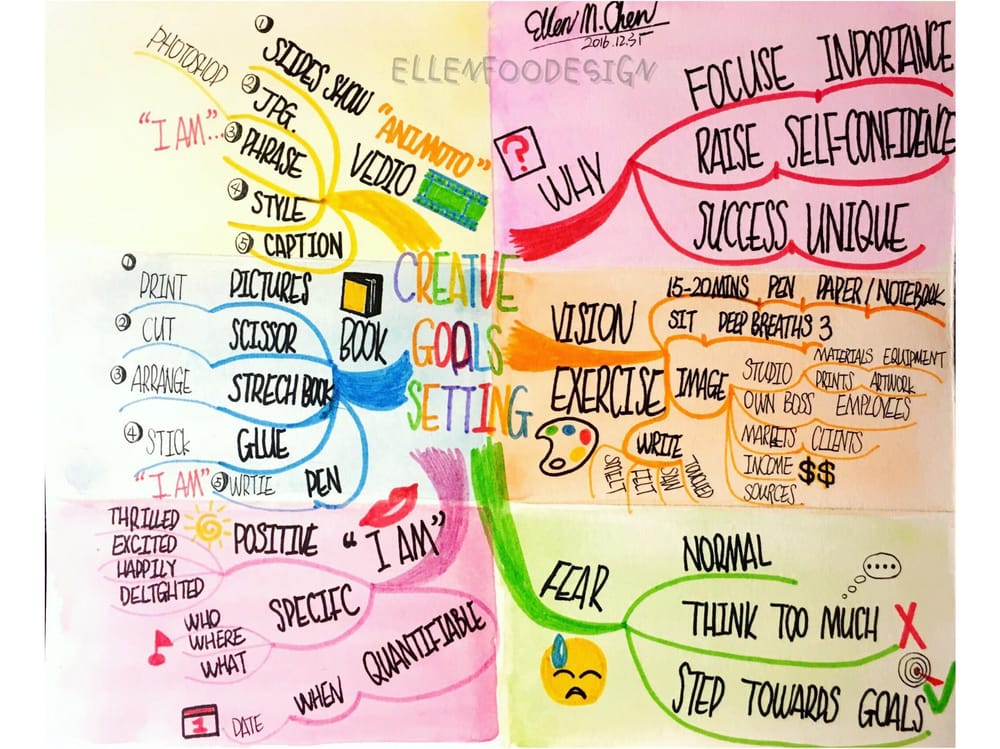 Ellen M. Chen
2016.12.31
ELLENFOODESIGN
CREATIVE
GOALS
SETTING
?
WHY
FOCUSE INPORTANCE
RAISE SELF-CONFIDENCE
SUCCESS UNIQUE
VISION
EXERCISE
15-20MINS PEN PAPER/NOTEBOOK
SIT DEEP BREATHS 3
IMAGE
STUDIO
MATERIALS EQUIPMENT
PRINTS ARTWORK
OWN BOSS EMPLOYEES
MARKETS CLIENTS
INCOME $$
SOURCES
WRITE
SMELT
FELT
SAW
TOUCHED
FEAR
NORMAL
THINK TOO MUCH X
STEP TOWARDS GOALS
"I AM"
POSITIVE
THRILLED
EXCITED
HAPPILY
DELTGHTED
SPECIIFC
WHO
WHERE
WHAT
QUANTIFIABLE
WHEN
DATE
1
BOOK
① PRINT PICTURES
② CUT SCISSOR
③ ARRANGE STRECH BOOK
④ STICK GLUE
"I AM" ⑤ WRTIE PEN
VEDIO
"ANIMOTO"
① SLIDES SHOW
PHOTOSHOP ② JPG.
"I AM"... ③ PHRASE
④ STYLE
⑤ CAPTION